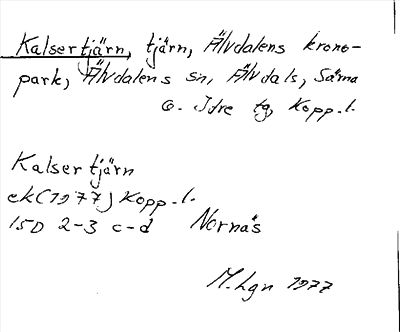 Kalsertjärn, tjärn, Älvdalens krono-
park, Älvdalens sn, Älvdals, Särna
o. Idre tg, Kopp. l.
Kalsertjärn
ek (1977) Kopp. l.
15D 2-3 c-d Nornäs
M. Lgn 1977